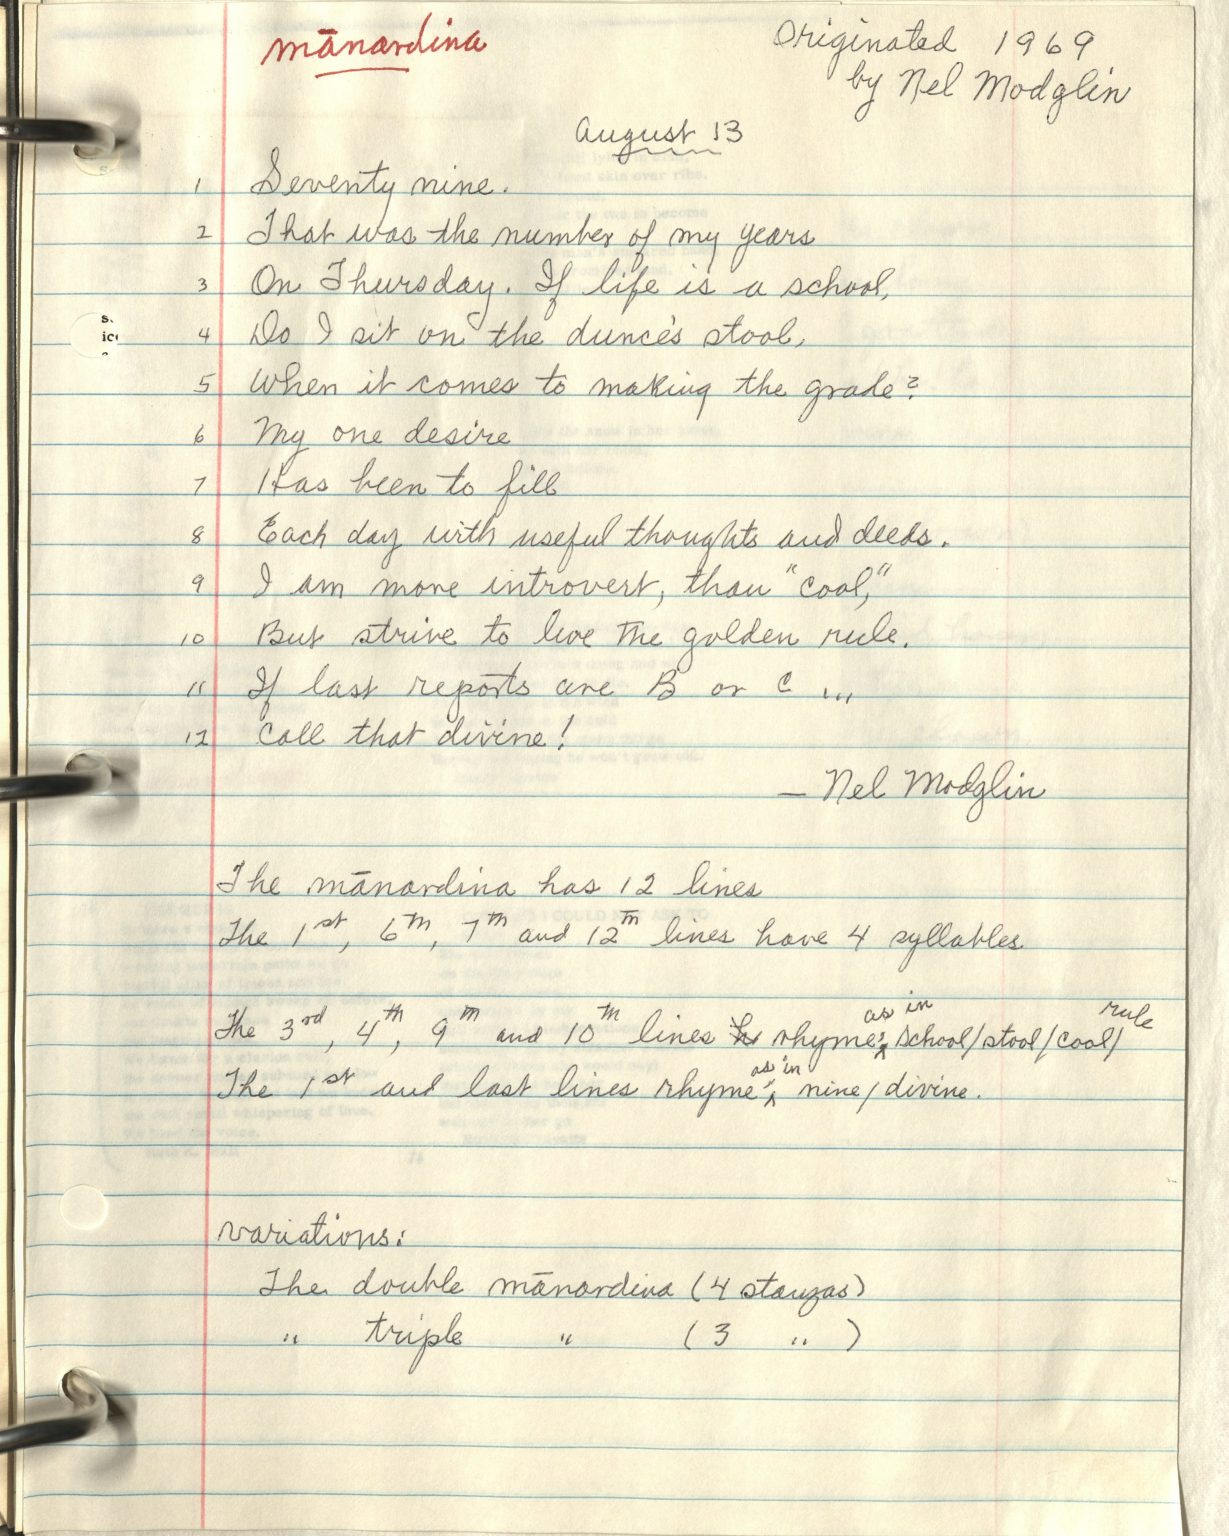 mānardina
Originated 1969
by Nel Modglin
August 13
1 Seventy nine.
2 That was the number of my years
3 On Thursday. If life is a school,
4 Do I sit on the dunce's stool,
5 When it comes to making the grade?
6 My one desire
7 Has been to fill
8 Each day with useful thoughts and deeds.
9 I am more introvert, than "cool,"
10 But strive to live the golden rule.
11 If last reports are B or C ...
12 Call that divine!
— Nel Modglin
The mānardina has 12 lines
The 1st, 6th, 7th and 12th lines have 4 syllables
The 3rd, 4th, 9th and 10th lines rhyme: as in school/stool/cool/rule
The 1st and last lines rhyme: as in nine/divine.
variations:
The double mānardina (4 stanzas)
" triple " (3 " )